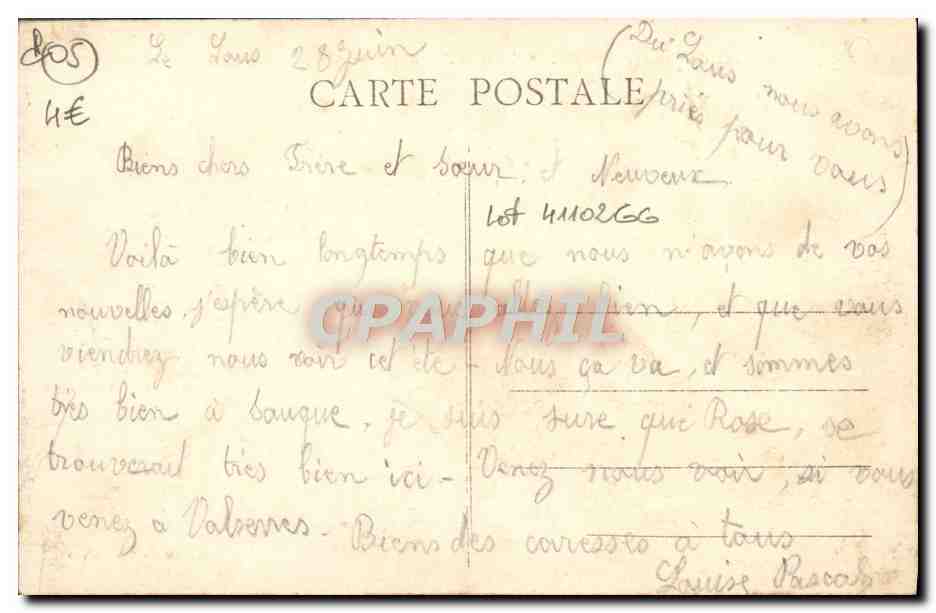 05
4€
Le Laus 28 Juin
(Du Laus nous avons
priés pour vous)
CARTE POSTALE
Biens chers Frère et Sœur. et Neuveux
Lot 4110266
Voilà bien longtemps que nous n'avons de vos
nouvelles, j'epère que vous allez bien, et que vous
viendrez nous voir cet été - Nous ça va, et sommes
très bien à Sauque, je suis sure que Rose, se
trouverait très bien ici - Venez nous voir, si vous
venez à Valserres - Biens des caresses à tous
Louise Pascal
CPAPHIL